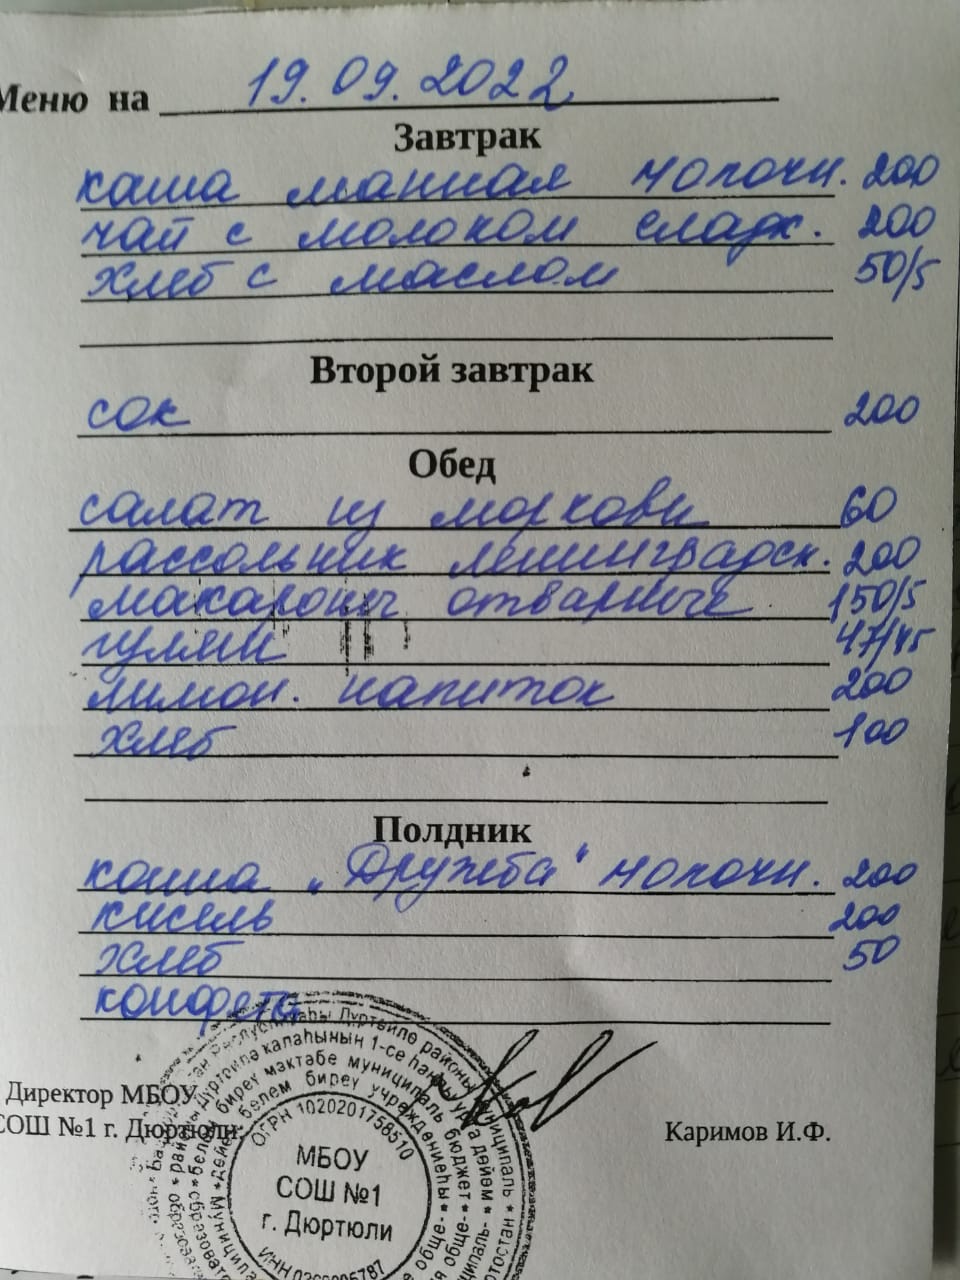 Меню на 19.09.2022
Завтрак
каша манная молочн. 200
чай с молоком сладк. 200
хлеб с маслом 50/5
Второй завтрак
сок 200
Обед
салат из моркови 60
рассольник ленинградск. 200
макароны отварные 150/5
гуляш 47/45
лимон. напиток 200
хлеб 100
Полдник
каша "Дружба" молочн. 200
кисель 200
хлеб 50
конфета
Директор МБОУ
СОШ №1 г. Дюртюли:
Каримов И.Ф.
ОГРН 1020201758510
МБОУ
СОШ №1
г. Дюртюли